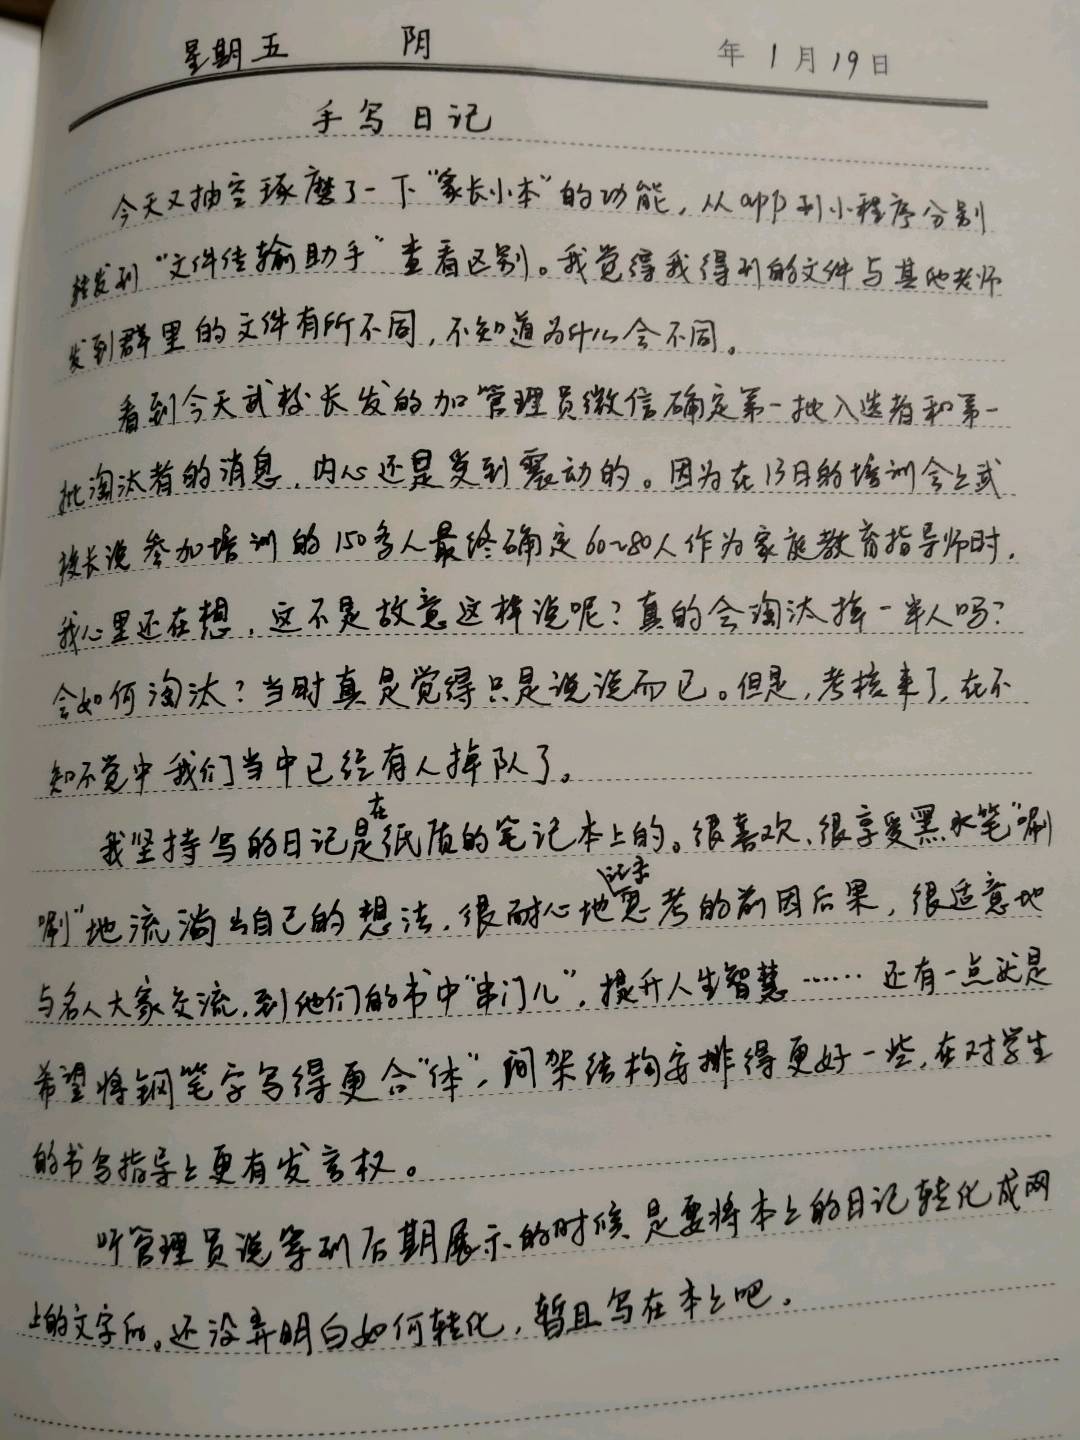 星期五 阴 年1月19日
手写日记
今天又抽空琢磨了一下“家长小本”的功能，从app到小程序分别
转发到“文件传输助手”查看区别。我觉得我得到的文件与其他老师
发到群里的文件有所不同，不知道为什么会不同。
看到今天武校长发的加管理员微信确定第一批入选者和第一
批淘汰者的消息，内心还是受到震动的。因为在13日的培训会上武
校长说参加培训的150多人最终确定60~80人作为家庭教育指导师时，
我心里还在想，这不是故意这样说呢？真的会淘汰掉一半人吗？
会如何淘汰？当时真是觉得只是说说而已。但是，考核来了，在不
知不觉中我们当中已经有人掉队了。
我坚持写的日记是在纸质的笔记本上的。很喜欢、很享受黑水笔“唰
唰”地流淌出自己的想法，很耐心地记录思考的前因后果，很适意地
与名人大家交流，到他们的书中“串门儿”，提升人生智慧……还有一点就是
希望将钢笔字写得更合“体”，间架结构安排得更好一些，在对学生
的书写指导上更有发言权。
听管理员说等到后期展示的时候是要将本上的日记转化成网
上的文字的。还没弄明白如何转化，暂且写在本上吧。